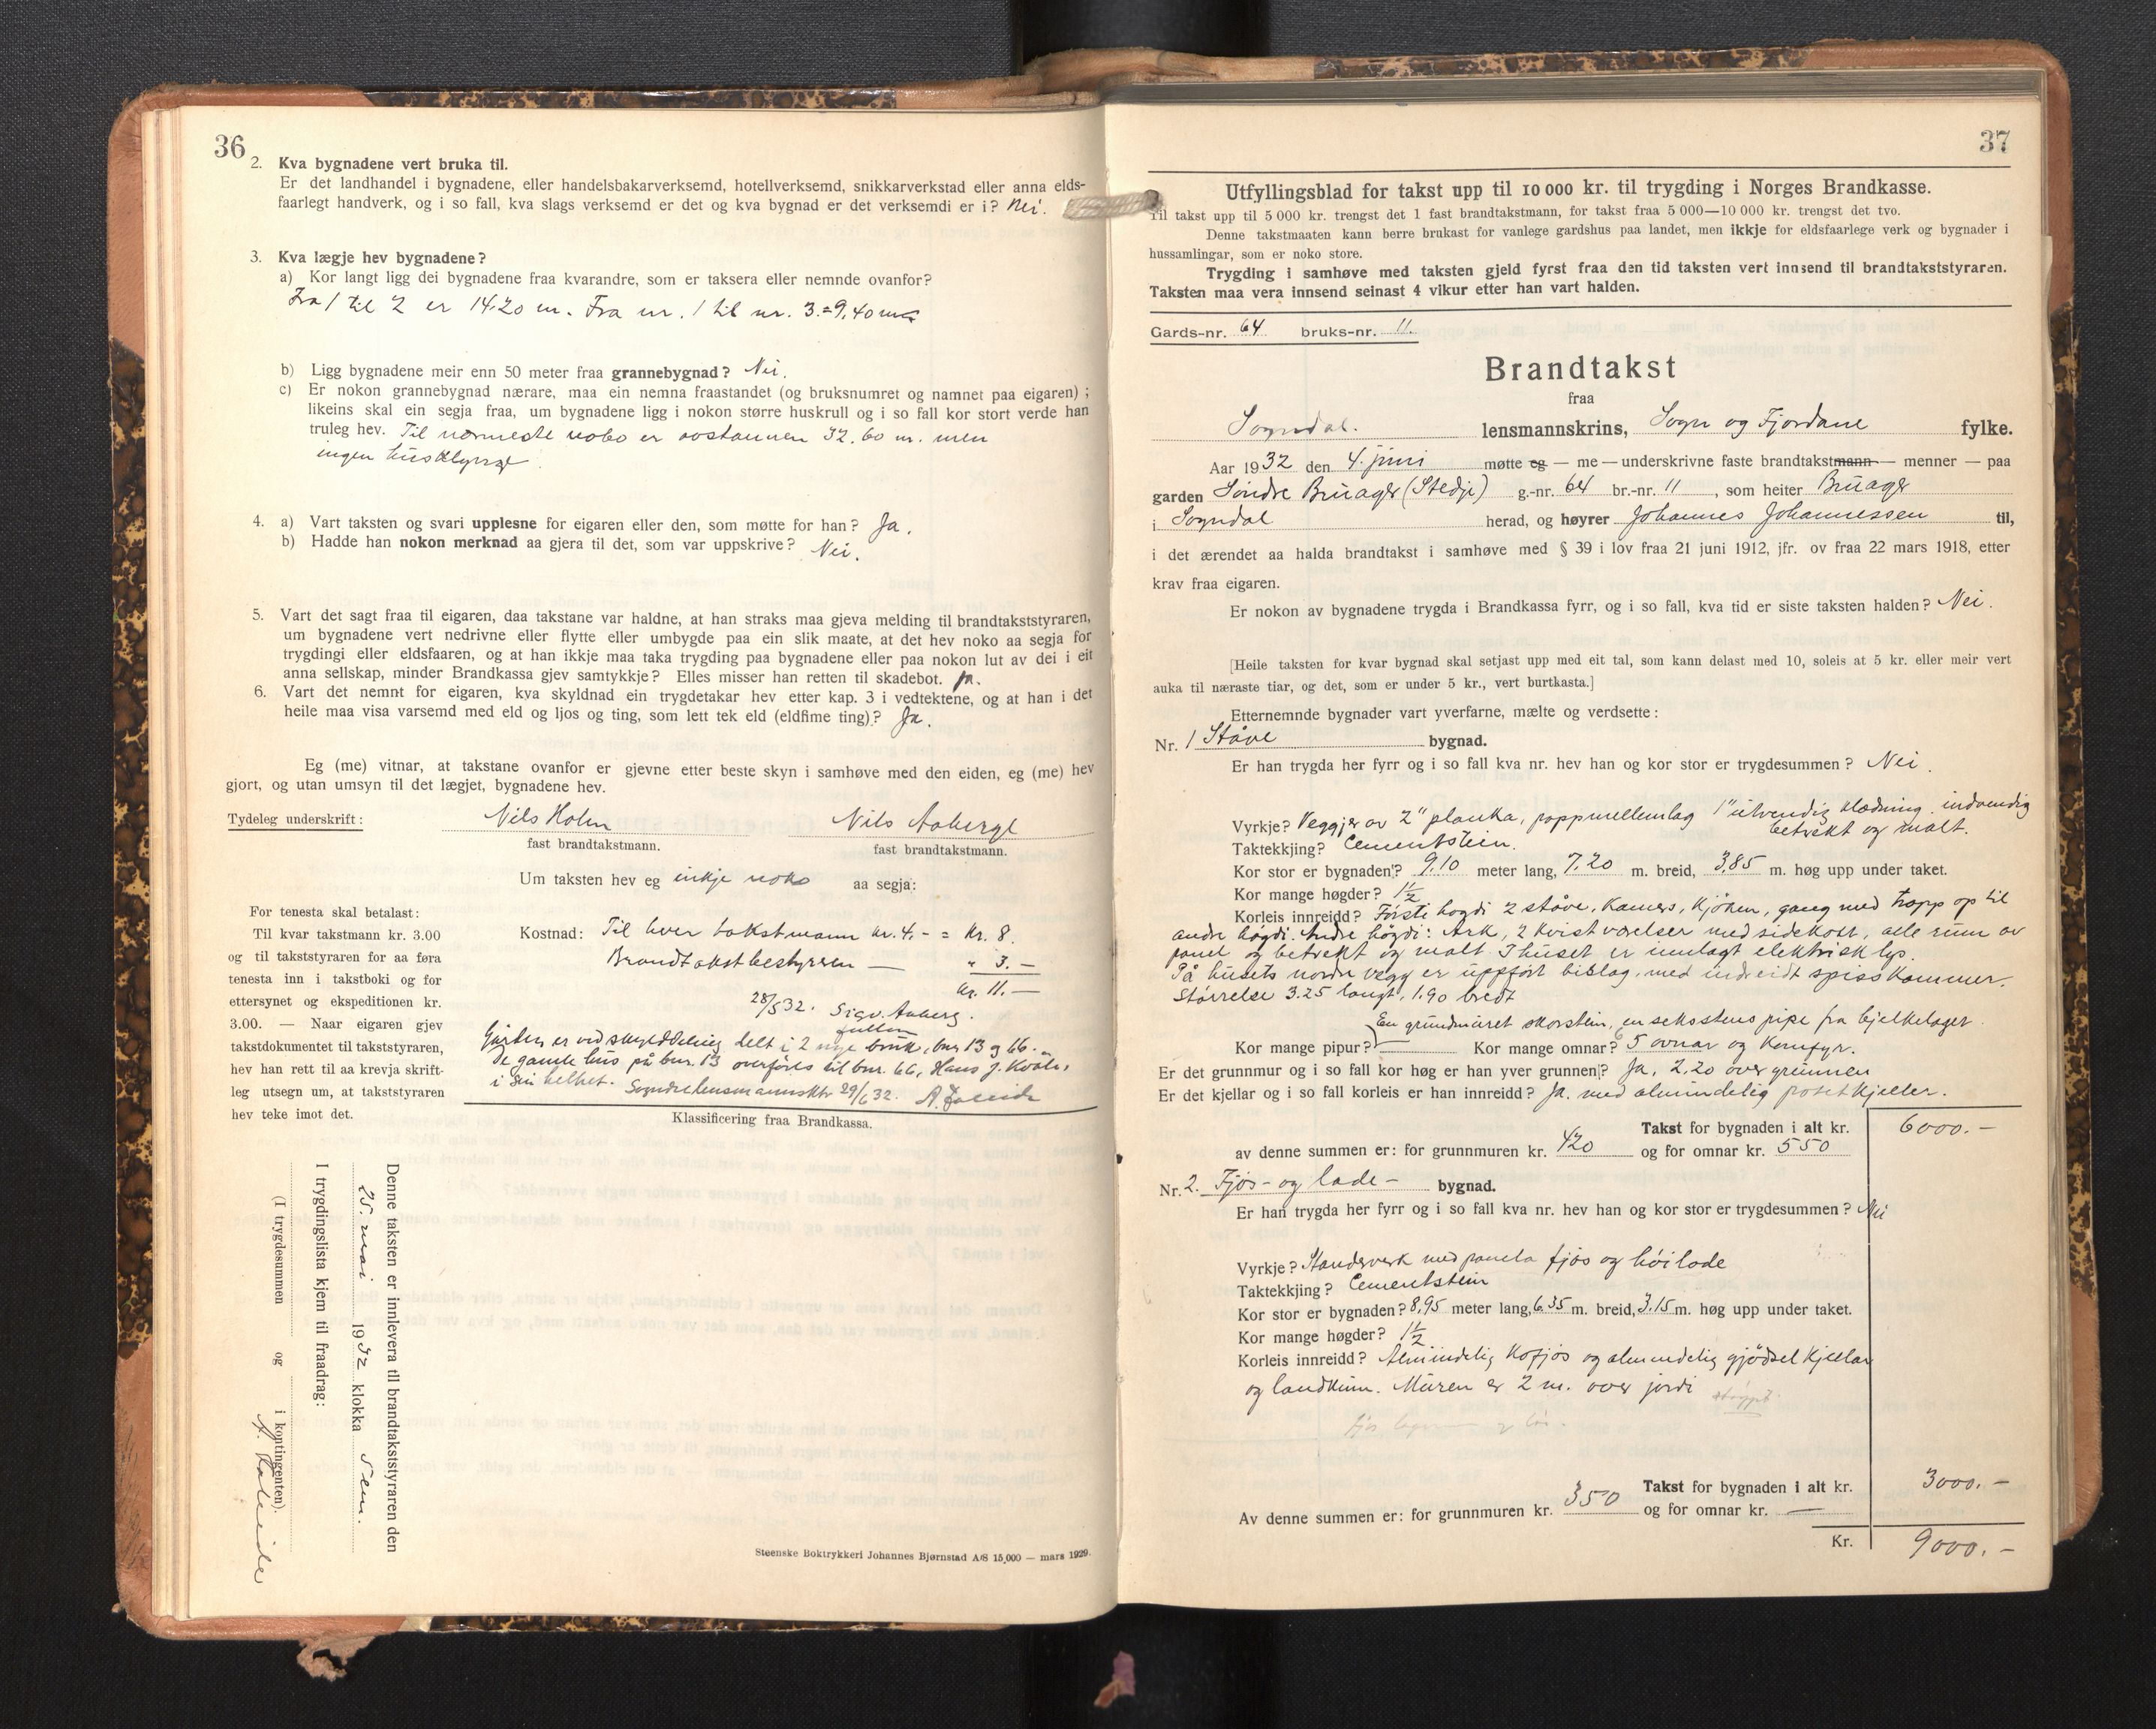 36
2. Kva bygnadene vert bruka til.
Er det landhandel i bygnadene, eller handelsbakarverksemd, hotellverksemd, snikkarverkstad eller anna elds-
faarlegt handverk, og i so fall, kva slags verksemd er det og kva bygnad er det verksemdi er i? Nei.
3. Kva lægje hev bygnadene?
a) Kor langt ligg dei bygnadene fraa kvarandre, som er taksera eller nemnde ovanfor?
Fra 1 til 2 er 14.20 m. Fra nr. 1 til nr. 3 = 9.40 m
b) Ligg bygnadene meir enn 50 meter fraa grannebygnad? Nei.
c) Er nokon grannebygnad nærare, maa ein nemna fraastandet (og bruksnumret og namnet paa eigaren) ;
likeins skal ein segja fraa, um bygnadene ligg i nokon større huskrull og i so fall kor stort verde han
truleg hev. Til nærmeste nabo er avstannen 32.60 m. men
ingen husklynge.
4. a) Vart taksten og svari upplesne for eigaren eller den, som møtte for han? Ja.
b) Hadde han nokon merknad aa gjera til det, som var uppskrive? Nei.
5. Vart det sagt fraa til eigaren, daa takstane var haldne, at han straks maa gjeva melding til brandtakststyraren,
um bygnadene vert nedrivne eller flytte eller umbygde paa ein slik maate, at det hev noko aa segja for
trygdingi eller eldsfaaren, og at han ikkje maa taka trygding paa bygnadene eller paa nokon lut av dei i eit
anna sellskap, minder Brandkassa gjev samtykkje? Elles misser han retten til skadebot. Ja.
6. Vart det nemnt for eigaren, kva skyldnad ein trygdetakar hev etter kap. 3 i vedtektene, og at han i det
heile maa visa varsemd med eld og ljos og ting, som lett tek eld (eldfime ting)? Ja.
Eg (me) vitnar, at takstane ovanfor er gjevne etter beste skyn i samhøve med den eiden, eg (me) hev
gjort, og utan umsyn til det lægjet, bygnadene hev.
Tydeleg underskrift: Nils Holen Nils Aaberge
fast brandtakstmann. fast brandtakstmann.
Um taksten hev eg inkje noko aa segja:
For tenesta skal betalast:
Til kvar takstmann kr. 3.00
og til takststyraren for aa føra
tenesta inn i takstboki og for
ettersynet og ekspeditionen kr.
3.00. — Naar eigaren gjev
takstdokumentet til takststyraren,
hev han rett til aa krevja skrift-
leg utsegn um, at takststyraren
hev teke imot det.
Kostnad: Til hver takstmann kr. 4.- = Kr. 8.
Brandtakstbestyreren — " 3.—
kr. 11.—
28/5 32. Sigv. Aaberg.
fullm
Gården er ved skylddeling delt i 2 nye bruk, bnr. 13 og 66.
De gamle hus på bnr. 13 overføres til bnr. 66, Hans J. Kvåle,
i sin helhet. 29/6 32.
Klassificering fraa Brandkassa.
Denne taksten er innlevera til brandtakststyraren den
25. mai 1932 klokka 5 em.
I trygdingslista kjem til fraadrag:
(I trygdesummen og i kontingenten).
Steenske Boktrykkeri Johannes Bjørnstad A/S 15,000 — mars 1929.
37
Utfyllingsblad for takst upp til 10 000 kr. til trygding i Norges Brandkasse.
Til takst upp til 5 000 kr. trengst det 1 fast brandtakstmann, for takst fraa 5 000—10 000 kr. trengst det tvo.
Denne takstmaaten kann berre brukast for vanlege gardshus paa landet, men ikkje for eldsfaarlege verk og bygnader i
hussamlingar, som er noko store.
Trygding i samhøve med taksten gjeld fyrst fraa den tid taksten vert innsend til brandtakststyraren.
Taksten maa vera innsend seinast 4 vikur etter han vart halden.
Gards-nr. 64 bruks-nr. 11.
Brandtakst
fraa
Sogndal. lensmannskrins, Sogn og Fjordane fylke.
Aar 1932 den 4. juni møtte eg — me — underskrivne faste brandtakstmann — menner — paa
garden Søndre Bruager (Stedje) g.-nr. 64 br.-nr. 11, som heiter Bruager
i Sogndal herad, og høyrer Johannes Johannessen til,
i det ærendet aa halda brandtakst i samhøve med § 39 i lov fraa 21 juni 1912, jfr. ov fraa 22 mars 1918, etter
krav fraa eigaren.
Er nokon av bygnadene trygda i Brandkassa fyrr, og i so fall, kva tid er siste taksten halden? Nei.
[Heile taksten for kvar bygnad skal setjast upp med eit tal, som kann delast med 10, soleis at 5 kr. eller meir vert
auka til næraste tiar, og det, som er under 5 kr., vert burtkasta.]
Etternemnde bygnader vart yverfarne, mælte og verdsette:
Nr. 1 Ståve bygnad.
Er han trygda her fyrr og i so fall kva nr. hev han og kor stor er trygdesummen? Nei.
Vyrkje? Veggjer av 2" planka, pappmellemlag 1" utvendig klædning, indvendig
betrekt og malt.
Taktekkjing? Cementstein.
Kor stor er bygnaden? 9.10 meter lang, 7.20 m. breid, 3.85 m. høg upp under taket.
Kor mange høgder? 1½
Korleis innreidd? Første høgdi 2 ståve, Kamers, Kjøken, gang med trapp op til
andre høgdi. Andre høgdi: Ark, 2 kvistværelser med sidekott, alle rum av
panel og betrekt og malt. I huset er innlagt elektrisk lys.
På husets nordre vegg er uppført bislag, med indreidt spisskammer.
Størrelse 3.25 langt, 1.90 bredt
En grundmuret skorstein, en seksstens pipe fra bjelkelaget
Kor mange pipur? Kor mange omnar? 5 ovnar og Komfyr.
Er det grunnmur og i so fall kor høg er han yver grunnen? Ja, 2.20 over grunnen
Er det kjellar og i so fall korleis er han innreidd? Ja. med almindelig potetkjeller.
Takst for bygnaden i alt kr. 6000.-
av denne summen er: for grunnmuren kr. 420 og for omnar kr. 550
Nr. 2. Fjøs- og lade- bygnad.
Er han trygda her fyrr og i so fall kva nr. hev han og kor stor er trygdesummen? Nei
Vyrkje? Standsverk med panela fjøs og høilade
Taktekkjing? Cementstein
Kor stor er bygnaden? 8.95 meter lang, 6.35 m. breid, 3.15 m. høg upp under taket.
Kor mange høgder? 1½
Korleis innreidd? Almindelig Kofjøs og almindelig gjødselkjellar
og landkum. Muren er 2 m. over jordi
Takst for bygnaden i alt kr. 3000.-
Av denne summen er: for grunnmuren kr. 350 og for omnar kr. —
Kr. 9000.-